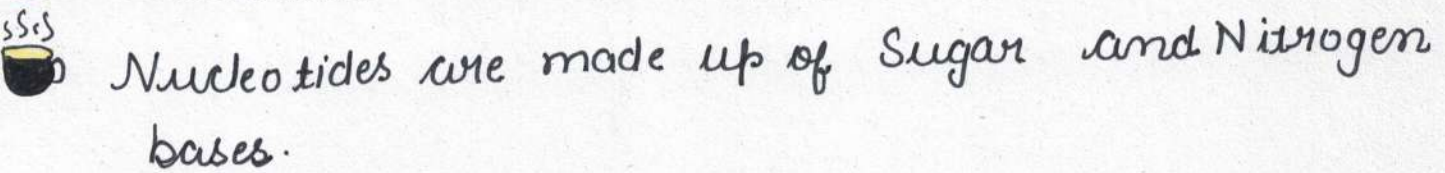 Nucleotides are made up of Sugar and Nitrogen
bases.